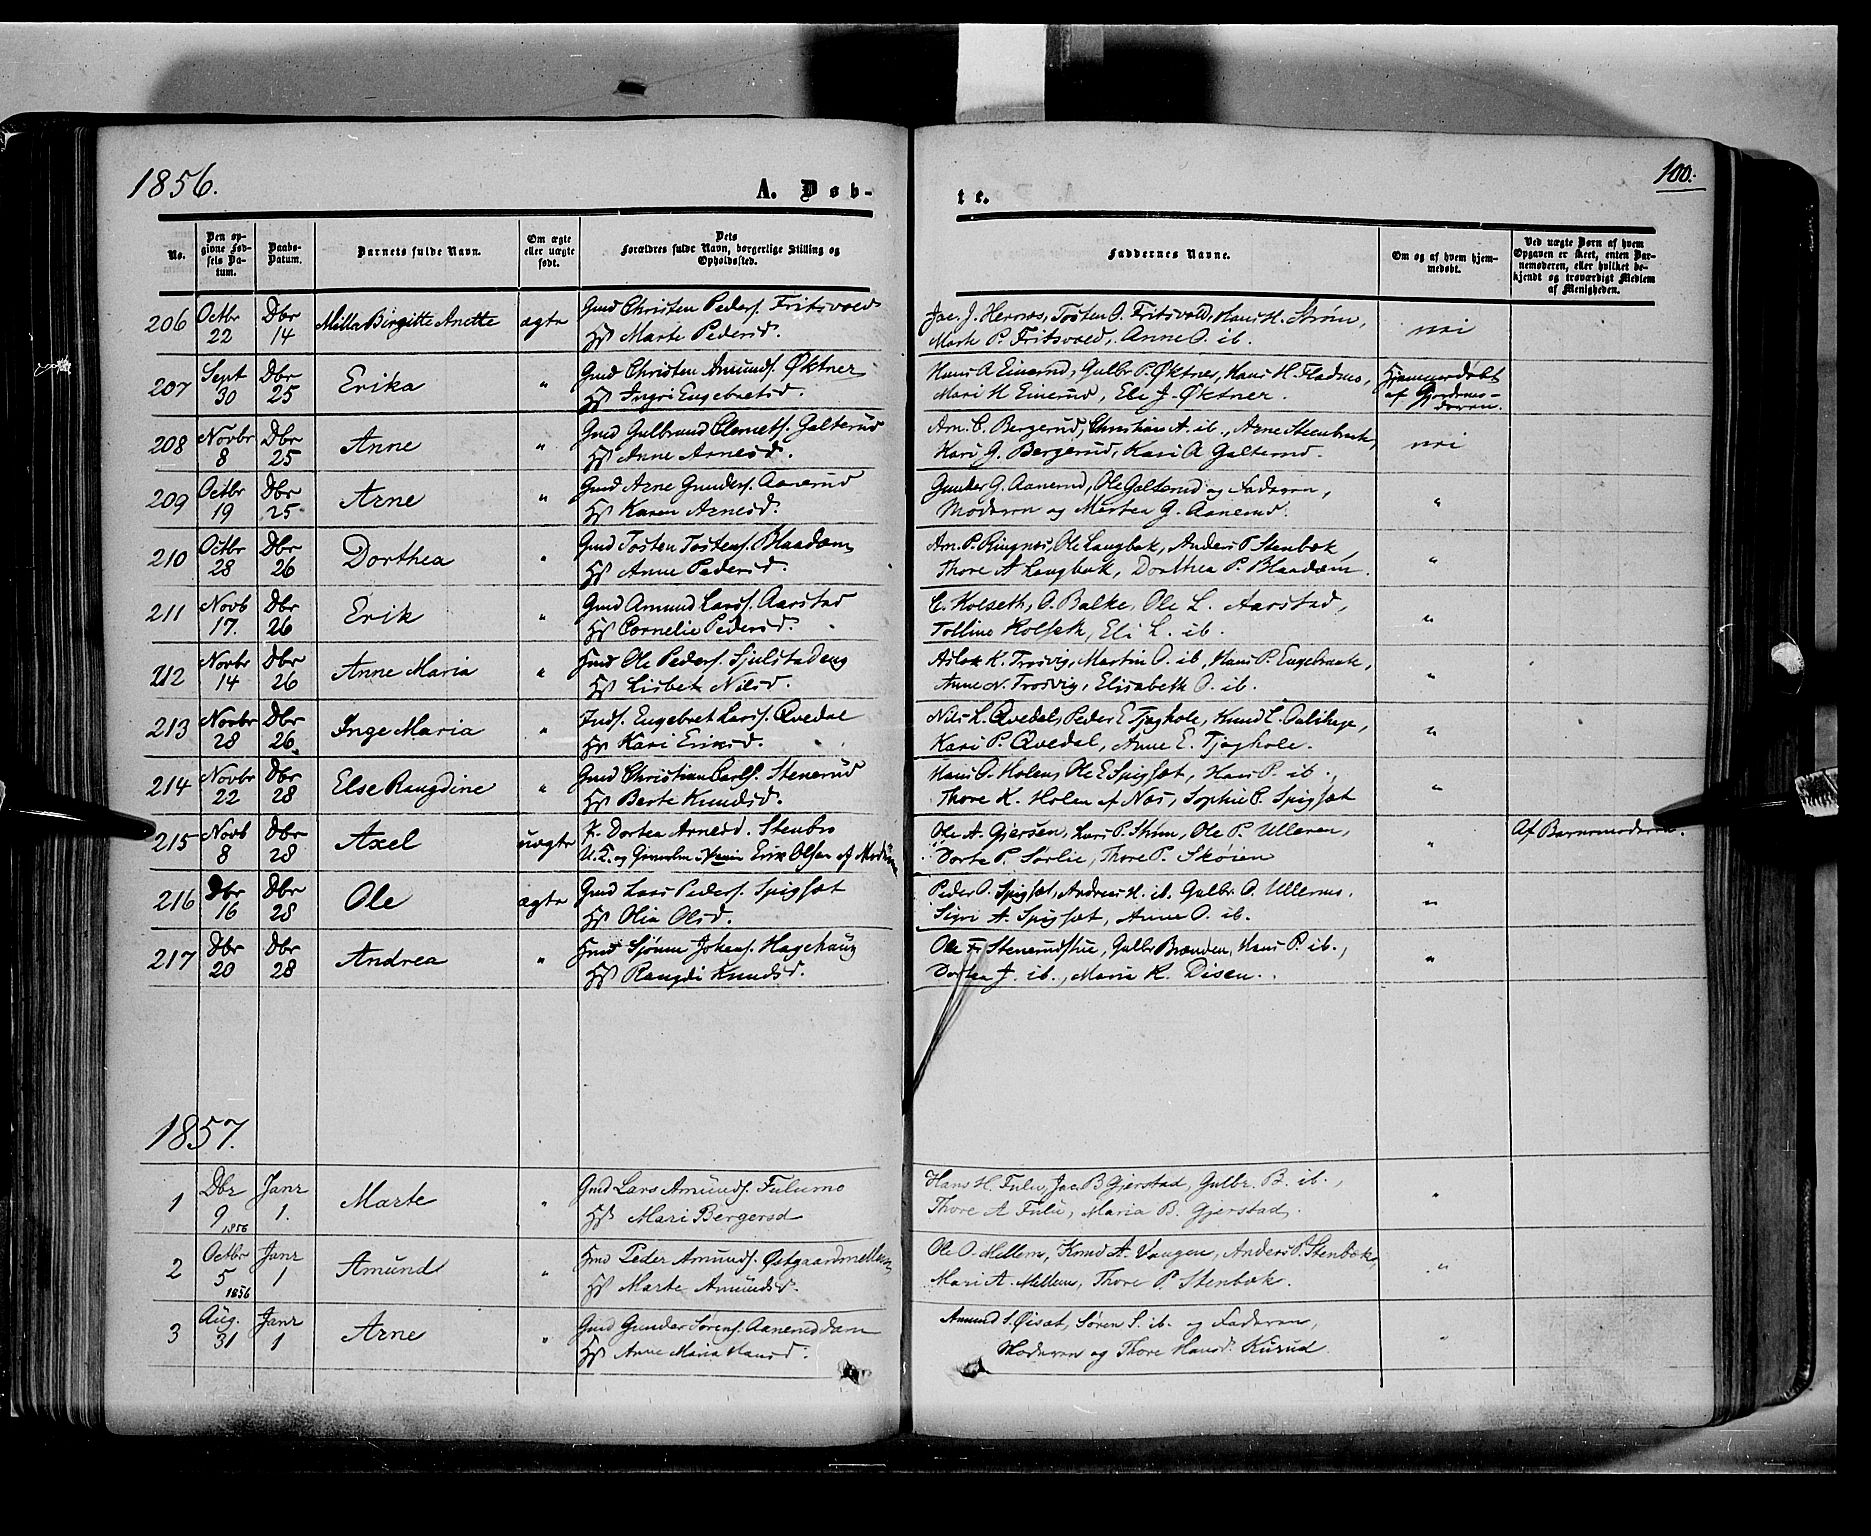 1856.
A. Døb-
te.
100.
No.
Den op-
givne Fød-
sels Da-
tum.
Daabs-
Datum.
Barnets fulde Navn.
Om ægte
eller uægte
født.
Dets
Forældres fulde Navn, borgerlige Stilling og
Opholdssted.
Faddernes Navne.
Om og af hvem hjem-
medøbt.
Ved uægte Børn af hvem
Opgaven er skeet, enten Bar-
nemoderen, eller hvilket be-
kjendt og troværdigt Medlem
af Menigheden.
206 Octbr 22 Dbr 14 Milla Birgitte Anette ægte
Gmd Christen Peders. Fritsvold
Hst Marte Pedersd.
Jac. J. Hernæs, Tosten O. Fritsvold, Hans H. Strøm,
Marte P. Fritsvold, Anne O. ib.
nei
207 Sept 30 Dbr 25 Erika "
Gmd Christen Amunds. Øktner
Hst Ingri Engebretsd.
Hans A Einerud, Gulbr. P. Øktner, Hans H. Fladnes,
Mari H Einerud, Eli J. Øktner.
Hjemmedøbt
af Gjordmo-
deren.
208 Novbr 8 Dbr 25 Anne "
Gmd Gulbrand Clemets. Galterud
Hst Anne Arnesd.
Arn. C. Bergerud, Christian A. ib., Arne Steenbrek,
Kari G. Bergerud, Kari A Galterud.
nei
209 Octbr 19 Dbr 25 Arne "
Gmd Arne Gunders. Aanerud
Hst Karen Arnesd.
Gunder G. Aanerud, Ole Galterud og Faderen,
Moderen og Marten G. Aanerud.
"
210 Octbr 28 Dbr 26 Dorthea "
Gmd Tosten Tostens. Blaadam
Hst Anne Pedersd.
Arn. P. Ringnæs, Ole Langbak, Anders P Stenbæk,
Thore A Langbak, Dorthea P. Blaadam.
"
211 Novb 17. Dbr 26 Erik "
Gmd Amund Larss. Aarstad
Hst Cornelie Pedersd.
C. Kolseth, O. Balke, Ole L. Aarstad,
Tolline Kolseth, Eli L. ib.
"
212 Novbr 14 Dbr 26 Anne Maria "
Hmd Ole Peders. Sjulstadeng
Hst Lisbet Nilsd.
Aslak K. Trosvig, Martin O. ib, Hans P. Engebraak,
Anne N. Trosvig, Elisabeth O. ib.
"
213 Novbr 28 Dbr 26 Inge Maria "
Inds. Engebret Larss. Qvedal
Hst Kari Eriksd.
Nils L. Qvedal, Peder E Tjaghole, Knud L.
Kari P. Qvedal, Anne E. Tjaghole.
"
214 Novbr 22 Dbr 28 Else Rangdine "
Gmd Christian Carls. Stenerud
Hst Berte Knudsd.
Hans O. Holen, Ole E Spigset, Hans P. ib.,
Thore K. Holen af Næs, Sophie C. Spigset
"
215 Novb 8 Dbr 28 Axel uægte
P. Dortea Arnesd. Stenbro
U. K. og Erik Olsen af Modum
Ole A. Gjersøen, Lars P. Strøm, Ole P. Ulleren,
Dorte P. Sørlie, Thore P. Skøien
"
Af Barnemoderen.
216 Dbr 16 Dbr 28 Ole ægte
Gmd Lars Peders. Spigset
Hst Olia Olsd.
Peder O. Spigset, Andreas H. ib. Gulbr. O. Ullernes.
Sigri A. Spigset, Anne O. ib.
"
217 Dbr 20 Dbr 28 Andrea "
Hmd Sjønne Johans. Hagehaug
Hst Rangdi Knudsd.
Ole Fr. Stenerudstue, Gulbr Brænden, Hans P. ib.,
Dortea J. ib., Maria K. Disen.
"
1857.
1 Dbr 9 1856 Janr 1. Marte "
Gmd Lars Amunds. Fulumo
Hst Mari Bergersd
Hans H. Fulu, Jac. B Gjerstad, Gulbr. B. ib.,
Thore A Fulu, Maria B. Gjerstad.
"
2 Octbr 5 1856 Janr 1 Amund "
Hmd Peder Amunds. Østgaardmellem
Hst Marte Amundsd.
Ole O. Mellem, Knud A. Vangen, Anders P. Stenbæk,
Mari A. Mellem, Thore P. Stenbæk.
"
3 Aug. 31 Janr 1 Arne "
Gmd Gunder Sørens. Aaneruddam
Hst Anne Maria Hansd.
Amund S. Øisæt, Søren S. ib. og Faderen,
Moderen og Thore Hansd. Kurud
"